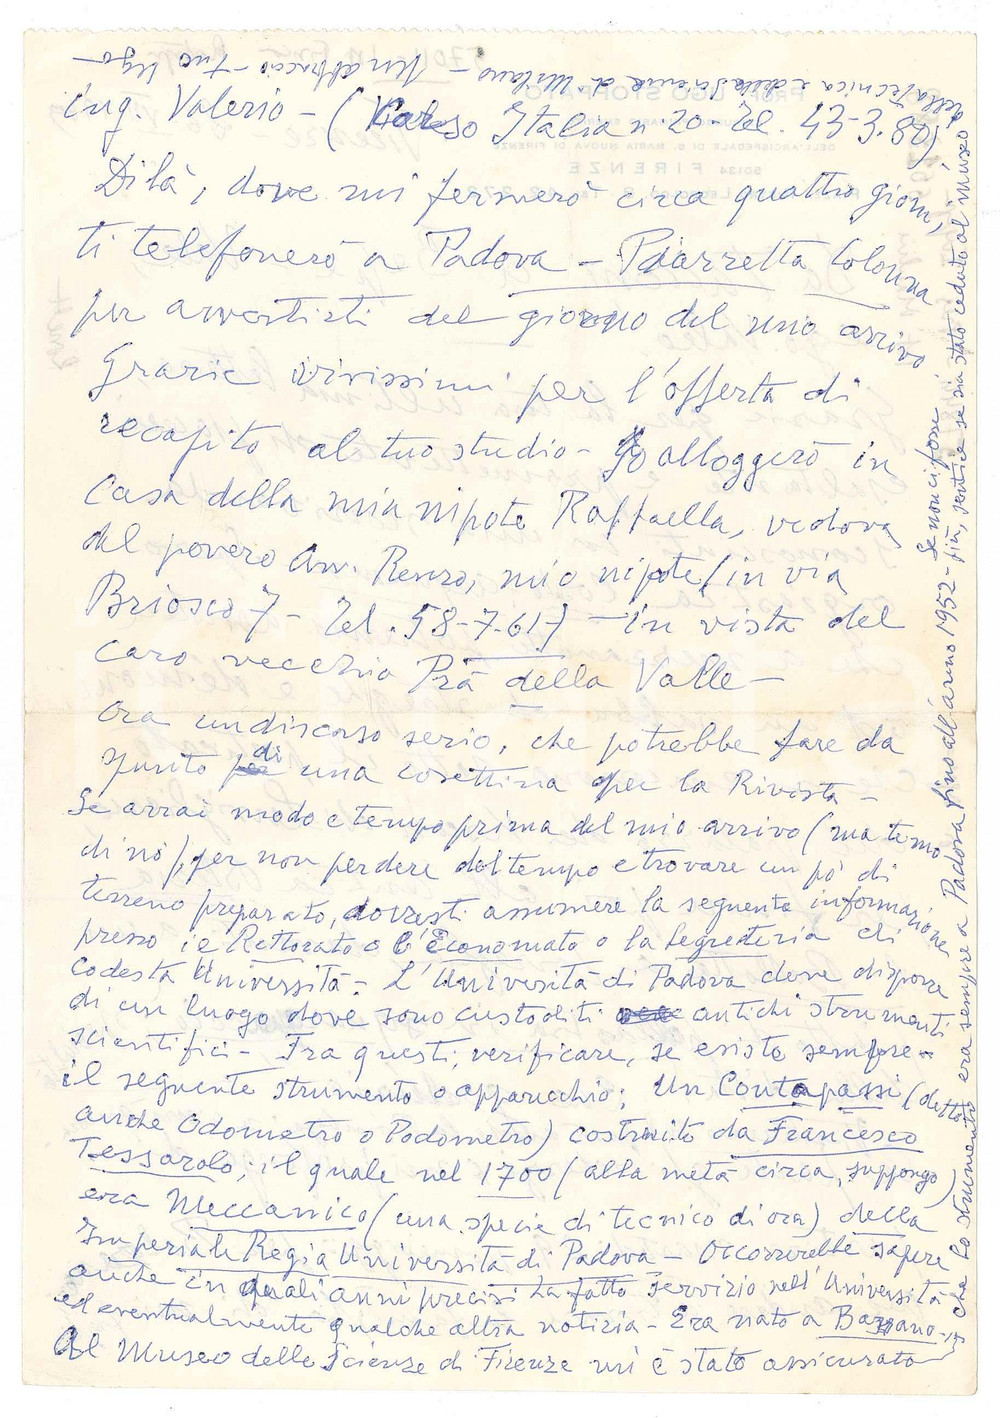 ing. Valerio - (Corso Italia n. 20 - Tel. 43-3.80)
Di là, dove mi fermerò circa quattro giorni,
ti telefonerò a Padova - Piazzetta Colonna
per avvertirti del giorno del mio arrivo
Grazie vivissimi per l'offerta di
recapito al tuo studio - Io alloggerò in
Casa della mia nipote Raffaella, vedova
del povero Avv. Renzo, mio nipote (in via
Briosco 7 - Tel. 58-7.61) - in vista del
caro vecchio Prà della Valle -
Ora un discorso serio, che potrebbe fare da
spunto di una cosettina per la Rivista -
Se avrai modo e tempo prima del mio arrivo (ma temo
di no), per non perdere del tempo e trovare un po' di
terreno preparato, dovresti assumere la seguente informazione
presso il Rettorato o l'Economato o la Segreteria di
codesta Università - L'Università di Padova deve disporre
di un luogo dove sono custoditi antichi strumenti
scientifici - Fra questi, verificare, se esiste sempre -
il seguente strumento o apparecchio; Un Contapassi (detto
anche Odometro o Podometro) costruito da Francesco
Tessarolo; il quale nel 1700 (alla metà circa, suppongo)
era Meccanico (una specie di tecnico di ora) della
Imperiale Regia Università di Padova - Occorrerebbe sapere
anche in quali anni precisi ha fatto servizio nell'Università
ed eventualmente qualche altra notizia - Era nato a
Al Museo delle Scienze di Firenze mi è stato assicurato
che lo strumento era sempre a Padova fino all'anno 1952 - Se non ci fosse
più, sentire se sia stato ceduto al museo
della Tecnica e delle Scienze di Milano - Un abbraccio - tuo Ugo -
PROF. UGO STOPPATO
DELL'ARCISPEDALE DI S. MARIA NUOVA DI FIRENZE
50134 FIRENZE